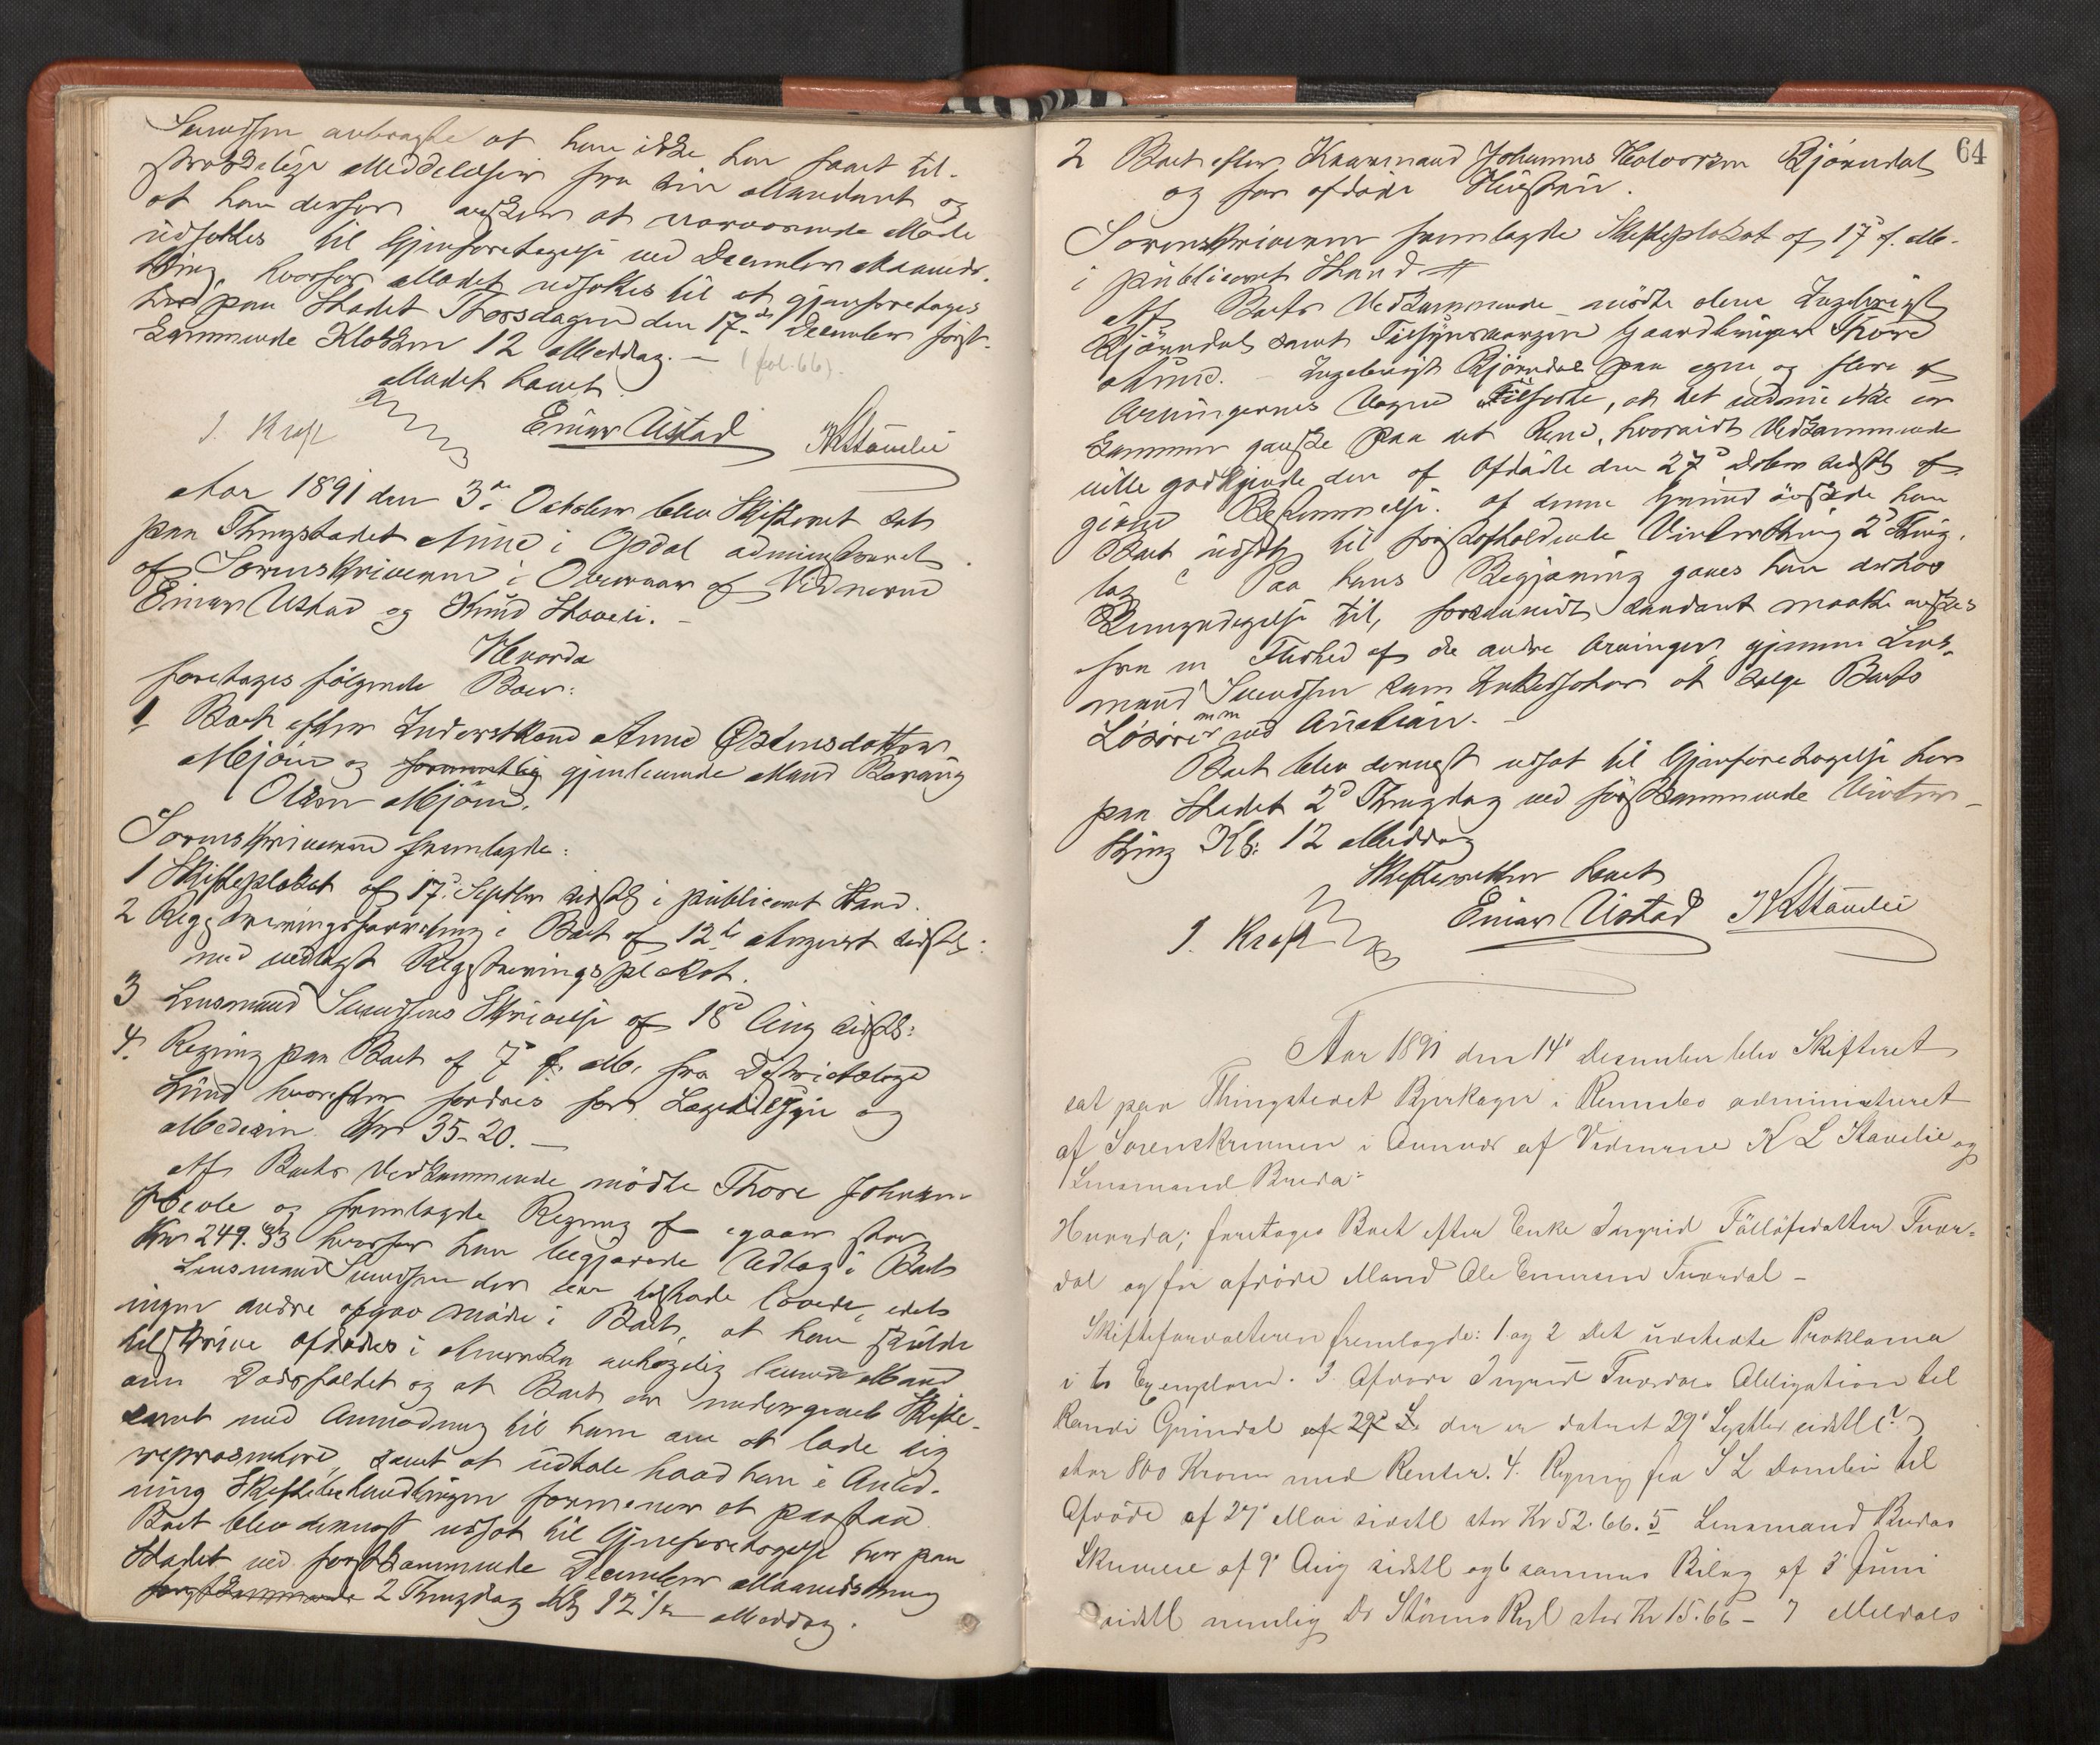 Svendsen anbragte at han ikke har faaet til-
strækkelige Meddelelser fra sin Mandant og
at han derfor ønsker at nærværende Møde
udsættes til Gjenforetagelse ved December Maaneds-
thing, hvorfor Mødet udsættes til at gjenforetages
her paa Stedet Thorsdagen den 17de December først-
kommende Klokken 12 Middag. — (fol. 66).
Mødet hævet
J. Kraft Einar Ustad K L Stavelie
Aar 1891 den 3die October blev Skifteret sat
paa Thingstedet Aune i Opdal administreret
af Sorenskriveren i Overvær af Vidnerne
Einar Ustad og Knud Stoveli. —
Hvorda
foretages følgende Boer:
1 Boet efter Inderstkone Anne Estensdatter
Mjøen og formentlig gjenlevende Mand
Olsen Mjøen.
Sorenskriveren fremlagde:
1 Skifteplakat af 17. Septbr sidstl i publiceret Stand.
2 Registreringsforretning i Boet af 12te August sidstl:
med vedlagt Registreringsplakat.
3 Lensmand Svendsens Skrivelse af 18d Aug sidstl:
4. Regning paa Boet af 7d f. M. fra Districtslæge
Lund hvorefter fordres for Lægetilsyn og
Medicin Kr 35-20. —
Af Boets Vedkommende mødte Thore Johnsen
og fremlagde Regning af igaar stor
Kr 249.33 hvorfor han begjærede Udlæg i Boet
Lensmand Svendsen der var tilstede lovede, idet
ingen andre afgav Møde i Boet, at han skulde
tilskrive Afdødes i Amerika levende Mand
om Dødsfaldet og at Boet er undergivet Skifte-
samt med Anmodning til ham om at lade sig
repræsentere, samt at udtale hvad han i Anled-
ning Skiftebehandlingen formener at paastaa
Boet blev dernæst udsat til Gjenforetagelse her paa
Stedet ved førstkommende December Maanedsthing
førstkommende 2 Thingdag Kl 12 1/2 Middag.
64
2 Boet efter Kaarmand Johannes Halvorsen Bjørndal
og før afdøde Hustru.
Sorenskriveren fremlagde Skifteplakat af 17d f. M.
i publiceret Stand #
Af Boets Vedkommende mødte alene Ingebrigt
Bjørndal samt Tilsynsværgen Gaardbruger Thore
Aune. — Ingebrigt Bjørndal paa egne og flere af
Arvingernes Vegne tilførte, at det endnu ikke er
kommen ganske paa det Rene, hvorvidt Vedkommende
ville godkjende den af Afdøde den 27d sidstl af-
givne Bestemmelse. Af denne Grund ønskede han
Boet udsat til førstafholdende Vinterthing 2d Thing-
dag. Paa hans Begjæring gaves han derhos
Bemyndigelse til, forsaavidt saadant maatte ønskes
fra en Flerhed af de andre Arvinger, gjennem Lens-
mand Svendsen som Inkassator at sælge Boets
Løsøre m m ved Auction. —
Boet blev dernæst udsat til Gjenforetagelse her
paa Stedet 2d Thingdag ved førstkommende Vinter-
thing Kl: 12 Middag
Skifteretten hævet
J. Kraft Einar Ustad K L Stavelie
Aar 1891 den 14d Desember blev Skifteret
sat paa Thingstedet Bjerkager i Rennebo administreret
af Sorenskriveren i Overvær af Vidnerne K L Stavelie og
Lensmand Breda:
Hvorda; foretages Boet efter Enke Ingrid
dal og før afdøde Mand Ole —
Skifteforvalteren fremlagde: 1 og 2 Det udstedte Proklama
i to Exemplarer. 3. Afdøde Ingrid Obligation til
Randi Grindal af 29d S. der er dateret 29d Septbr sidstl (?)
stor 800 Kroner med Renter. 4. Regning fra S L til
Afdøde af 27d Mai sidstl stor Kr 52.66. 5 Lensmand Bredas
Skrivelse af 9d Aug sidstl og 6 sammes Bilag af 3d Juni
sidstl nemlig Dr Størens Regl stor Kr 15.66 — 7 Meldals